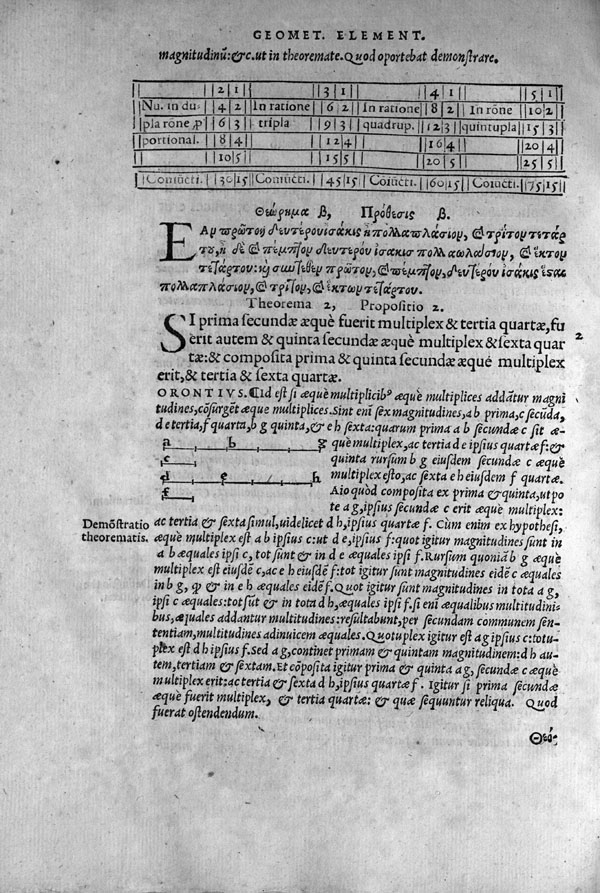 GEOMET. ELEMENT.
magnitudinū: &c. ut in theoremate. Quod oportebat demonstrare.
|2|1| |3|1| |4|1| |5|1|
Nu. in du- |4|2| In ratione |6|2| In ratione |8|2| In rōne |10|2|
pla rōne, p |6|3| tripla |9|3| quadrup. |12|3| quintupla |15|3|
portional. |8|4| |12|4| |16|4| |20|4|
|10|5| |15|5| |20|5| |25|5|
Coniūcti. |30|15| Coniūcti. |45|15| Cōiūcti. |60|15| Cōiūcti. |75|15|
Θεώρημα β, Πρόθεσις β.
ΕΑν πρῶτον δευτέρου ἰσάκις ἢ πολλαπλάσιον, & τρίτον τετάρ
του, ᾖ δὲ & πέμπτον δευτέρου ἰσάκις πολλαπλάσιον, & ἕκτον
τετάρτου: καὶ συντεθὲν πρῶτον, & πέμπτον, δευτέρου ἰσάκις ἔσαι
πολλαπλάσιον, & τρίτον, & ἕκτων τετάρτου.
Theorema 2, Propositio 2.
SI prima secundæ æquè fuerit multiplex & tertia quartæ, fu
erit autem & quinta secundæ æquè multiplex & sexta quar 2
tæ: & composita prima & quinta secundæ æqué multiplex
erit, & tertia & sexta quartæ.
ORONTIVS. ¶Id est si æquè multiplicibꝰ æque multiplices addātur magni
tudines, cōsurgēt æque multiplices. Sint enī sex magnitudines, a b prima, c secūda,
d e tertia, f quarta, b g quinta, & e h sexta: quarum prima a b secundæ c sit æ-
a b g què multiplex, ac tertia d e ipsius quartæ f: &
c quinta rursum b g eiusdem secundæ c æque
d e h multiplex esto, ac sexta e h eiusdem f quartæ.
f Aio quòd composita ex prima & quinta, ut po
te a g, ipsius secundæ c erit æquè multiplex:
Demōstratio ac tertia & sexta simul, uidelicet d h, ipsius quartæ f. Cùm enim ex hypothesi,
theorematis. æque multiplex est a b ipsius c: ut d e, ipsius f: quot igitur magnitudines sunt in
a b æquales ipsi c, tot sunt & in d e æquales ipsi f. Rursum quoniā b g æque
multiplex est eiusdē c, ac e h eiusdē f: tot igitur sunt magnitudines eidē c æquales
in b g, ꝙ & in e h æquales eidē f. Quot igitur sunt magnitudines in tota a g,
ipsi c æquales: tot sūt & in tota d h, æquales ipsi f. si eni æqualibus multitudini-
bus, æquales addantur multitudines: resultabunt, per secundam communem sen-
tentiam, multitudines adinuicem æquales. Quotuplex igitur est a g ipsius c: totu-
plex est d h ipsius f. Sed a g, continet primam & quintam magnitudinem: d h au-
tem, tertiam & sextam. Et cōposita igitur prima & quinta a g, secundæ c æquè
multiplex erit: ac tertia & sexta d h, ipsius quartæ f. Igitur si prima secundæ
æquè fuerit multiplex, & tertia quartæ: & quæ sequuntur reliqua. Quod
fuerat ostendendum.
Θεώ-